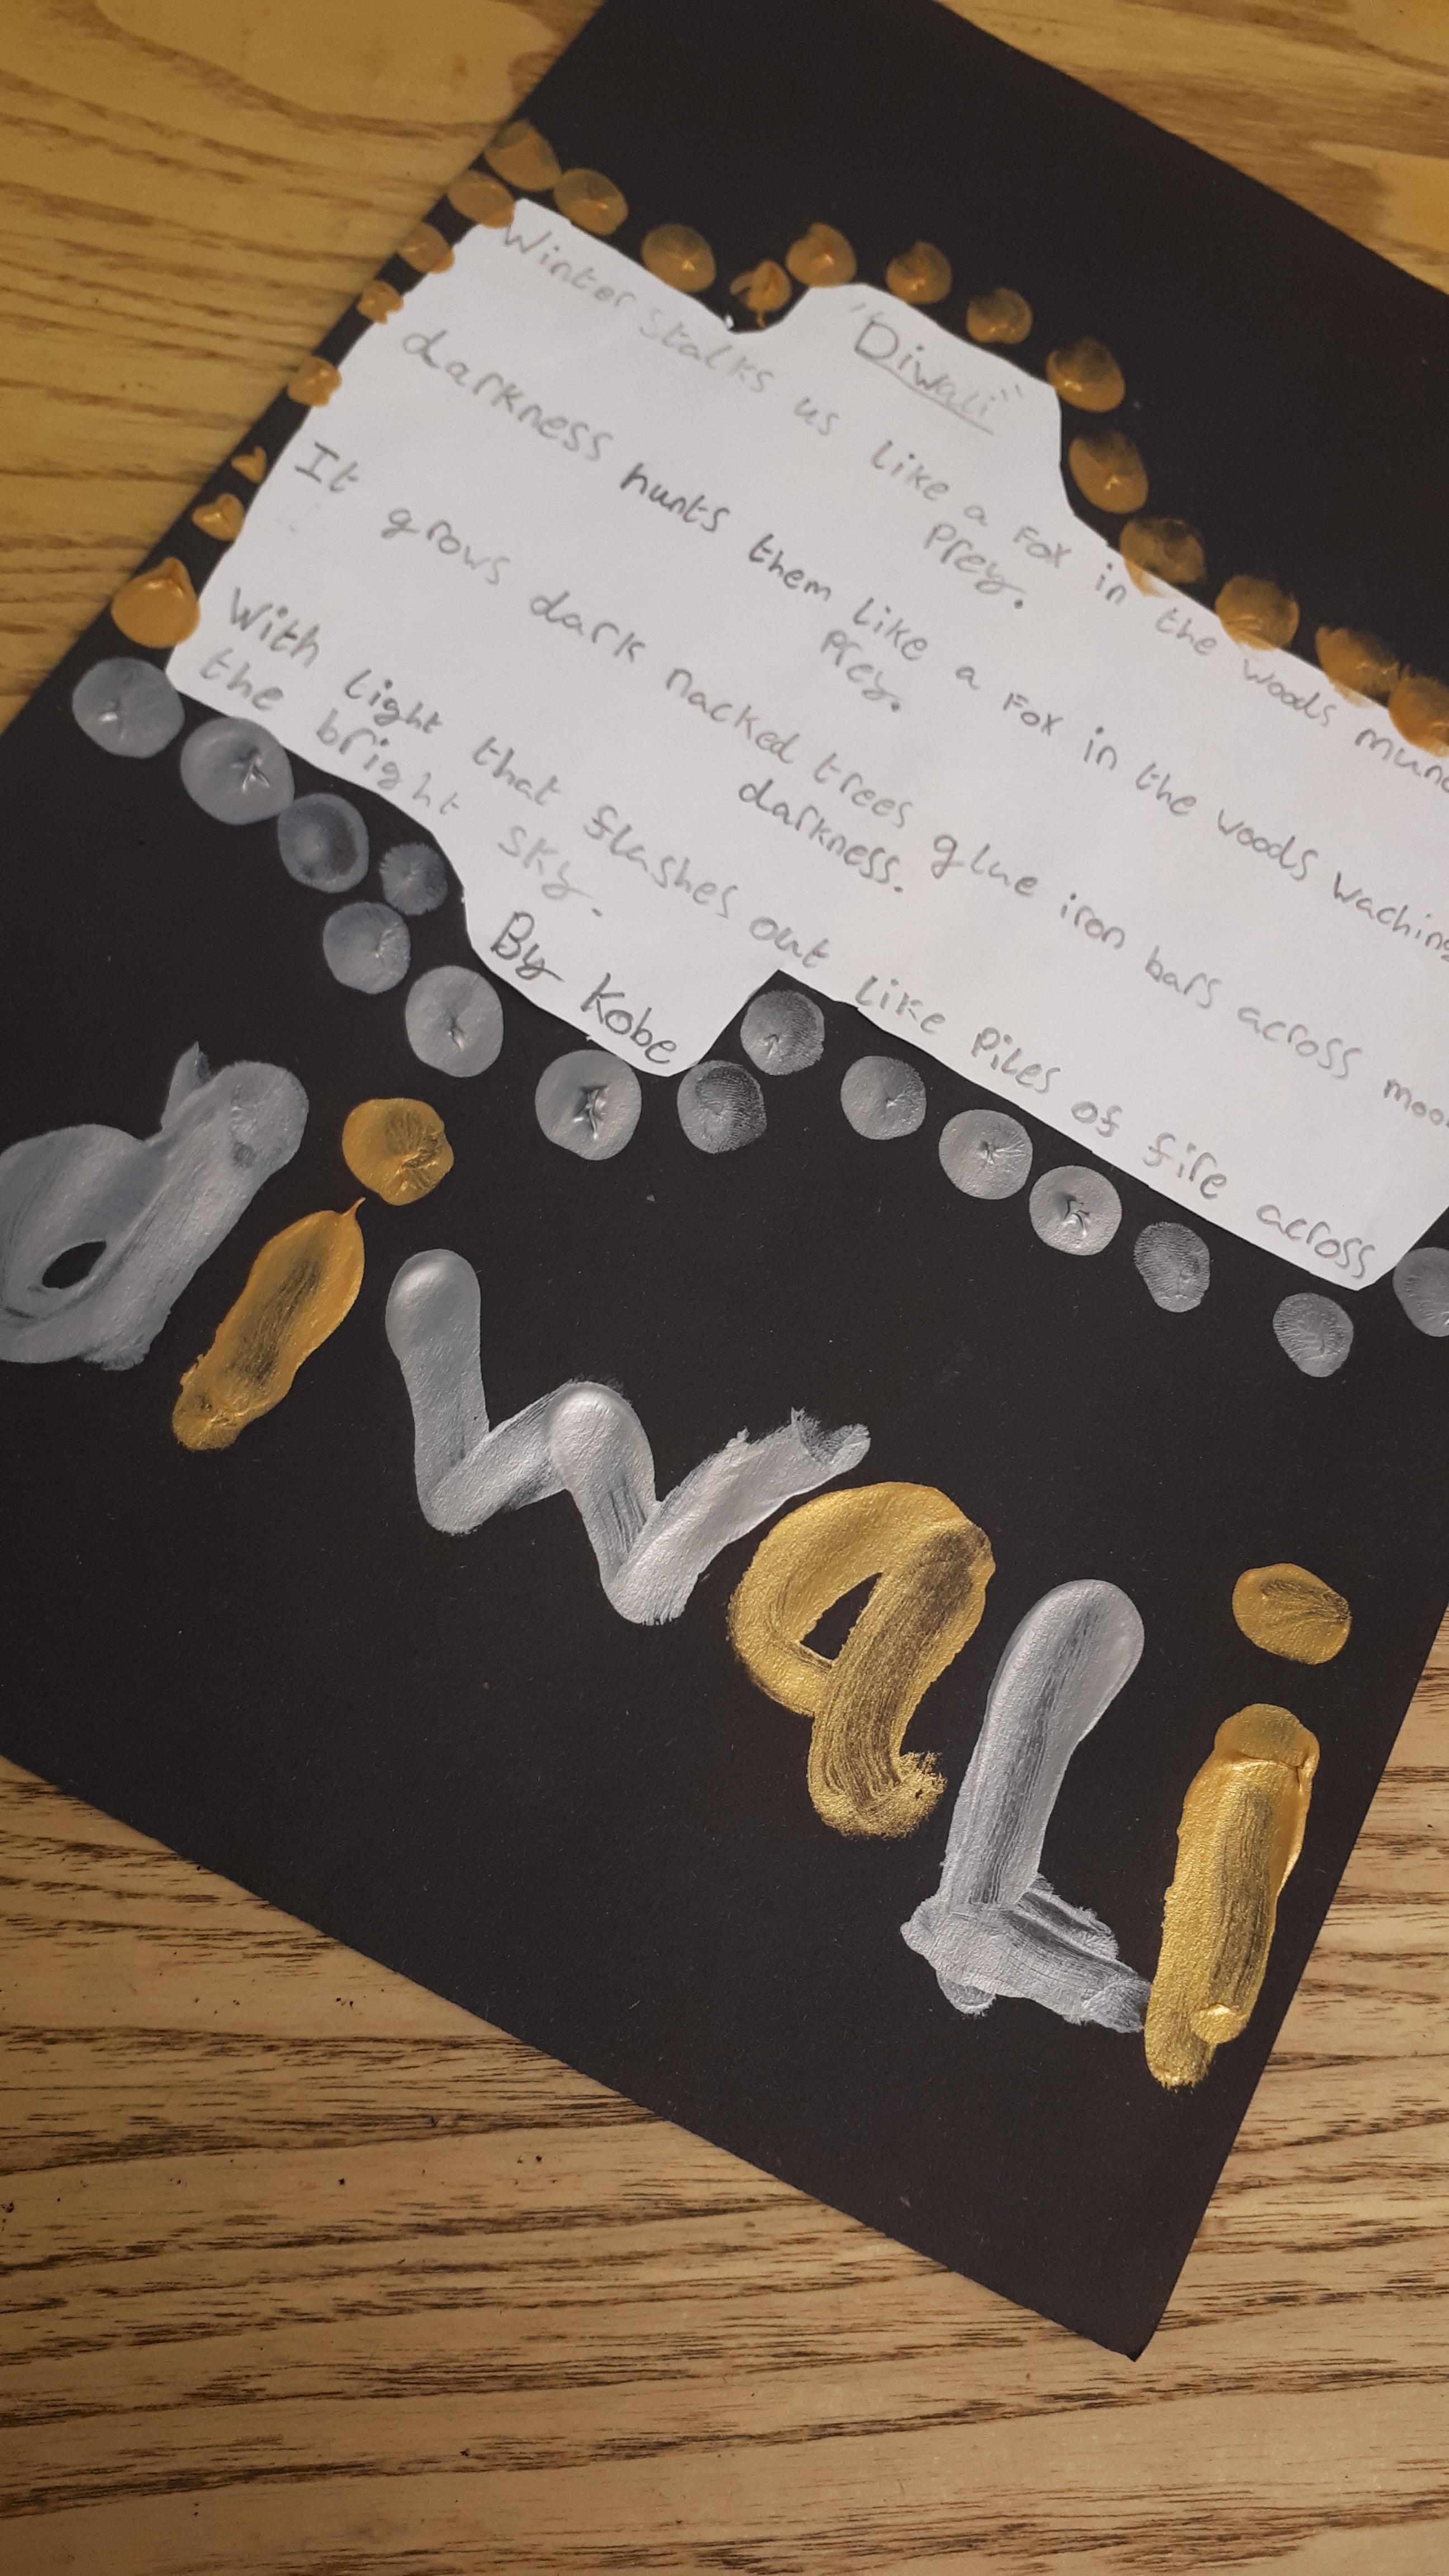 "Diwali"
Winter stalks us like a Fox in the woods
Prey.
darkness hunts them like a Fox in the woods waching
Prey.
It grows dark nacked trees glue iron bars across
darkness.
With light that flashes out like Piles of fire across
the bright sky.
By Kobe
diwali